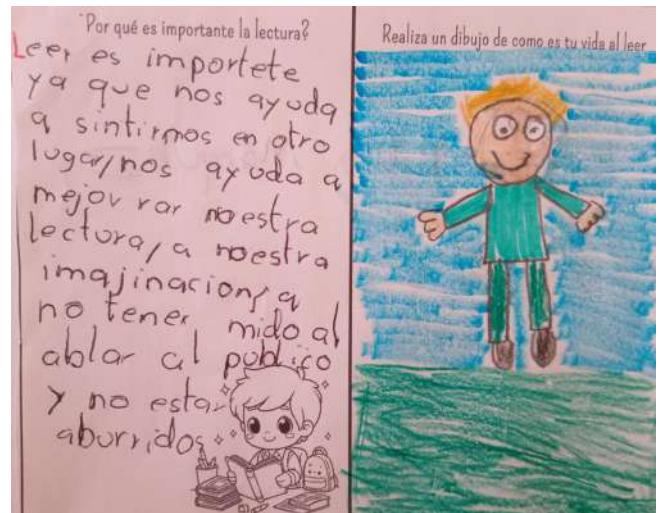 Por qué es importante la lectura?
Leer es importete
ya que nos ayuda
a sintirnos en otro
lugar/nos ayuda a
mejov rar noestra
lectora/a noestra
imajinacion/a
no tener mido al
ablar al publico
y no estar
aburridos
Realiza un dibujo de como es tu vida al leer